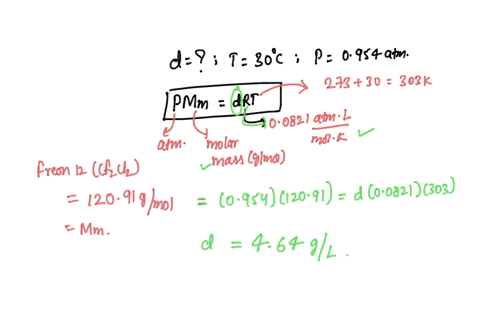 d=? ; T=30°C ; P= 0.954 atm.
273+30 = 303K
PMm = dRT
0.0821 atm·L / mol·K ✓
atm. molar mass (g/mol)
Freon 12 (CF2Cl2)
= 120.91 g/mol
= Mm.
✓ = (0.954)(120.91) = d(0.0821)(303)
d = 4.64 g/L.